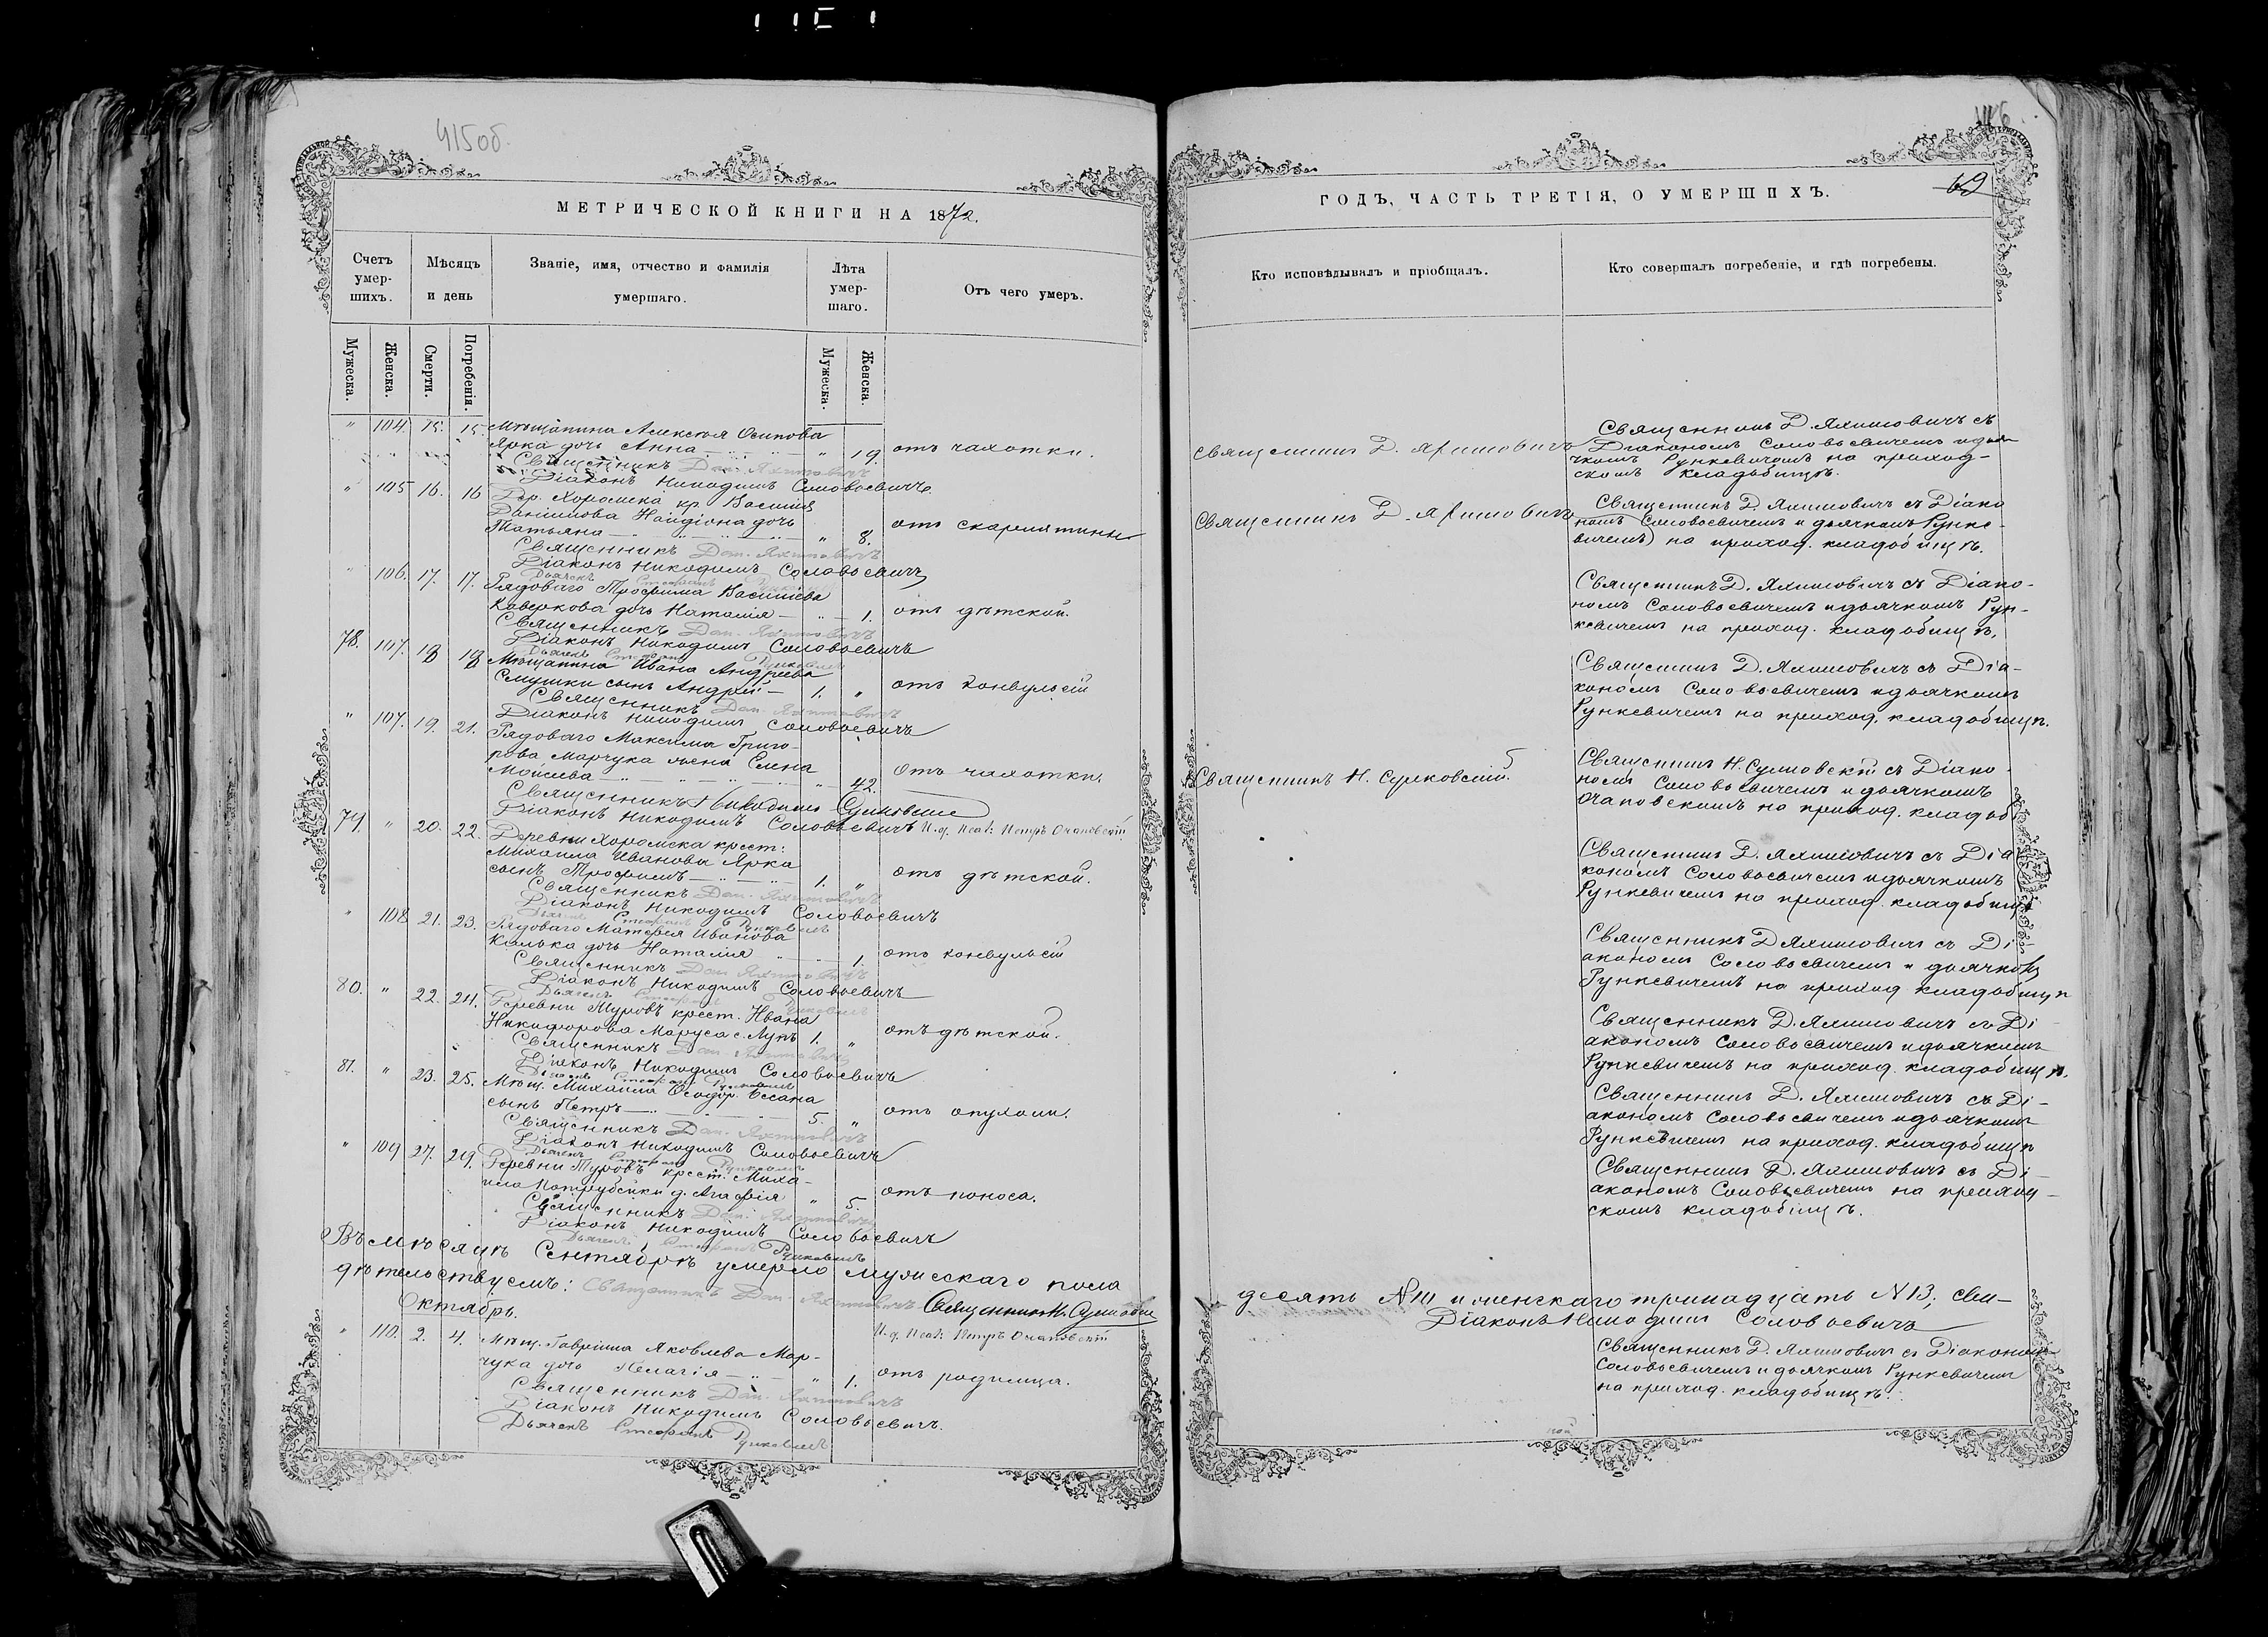 415об.
МЕТРИЧЕСКОЙ КНИГИ НА 1872.
Счетъ умер-шихъ.
Мѣсяцъ и день
Званіе, имя, отчество и фамилія умершаго.
Лѣта умер-шаго.
Отъ чего умеръ.
Мужеска.
Женска.
Смерти.
Погребенія.
Мужеска.
Женска.
" 104. 15. 15. Мѣщанина Алексѣя Осипова
Ярка дочь Анна " 19. отъ чахотки.
Священникъ Дан. Яхимовичъ
Діаконъ Никодимъ Соловьевичъ
" 105 16. 16 Дер. Хоромска кр. Василія
Данилова Найдіона дочь
Татьяна " 8. отъ скарлятины
Священникъ Дан. Яхимовичъ
Діаконъ Никодимъ Соловьевичъ
Дьячекъ Стефанъ
" 106. 17. 17. Рядоваго Трофима Васильева
Каверкова дочь Наталія 1. отъ дѣтской.
Священникъ Дан. Яхимовичъ
Діаконъ Никодимъ Соловьевичъ
Дьячекъ Стефанъ Рункевичъ
78. 107. 18 18 Мѣщанина Ивана Андреева
Слушки сынъ Андрей 1. " отъ конвульсій
Священникъ Дан. Яхимовичъ
Діаконъ Никодимъ Соловьевичъ
" 107. 19. 21. Рядоваго Максима Григо-
рова Марчука жена Елена
Моисеева " 42. Отъ чахотки.
Священникъ Никодимъ Сулковскій
Діаконъ Никодимъ Соловьевичъ И. д. Псал: Петръ Очаповскій
79. " 20. 22. Деревни Хоромска крест:
Михаила Иванова Ярка
сынъ Трофимъ 1. " отъ дѣтской.
Священникъ Дан. Яхимовичъ
Діаконъ Никодимъ Соловьевичъ
Дьячекъ Стефанъ Рункевичъ
" 108 21. 23. Рядоваго Матфея Иванова
дочь Наталія 1. отъ конвульсій
Священникъ Дан. Яхимовичъ
Діаконъ Никодимъ Соловьевичъ
Дьячекъ Стефанъ Рункевичъ
80. " 22. 24. Деревни Туровъ крест. Ивана
Никифорова Маруса с. Лупъ 1. " отъ дѣтской.
Священникъ Дан. Яхимовичъ
Діаконъ Никодимъ Соловьевичъ
Дьячекъ Стефанъ Рункевичъ
81. " 23. 25. Мѣщ. Михаила Ѳеодор.
сынъ Петръ 5. " отъ опухоли.
Священникъ Дан. Яхимовичъ
Діаконъ Никодимъ Соловьевичъ
Дьячекъ Стефанъ Рункевичъ
" 109 27. 29. Деревни Туровъ крест. Миха-
ила д. Агафія " 5. отъ поноса.
Священникъ Дан. Яхимовичъ
Діаконъ Никодимъ Соловьевичъ
Дьячекъ Стефанъ Рункевичъ
Въ мѣсяцѣ Сентябрѣ умерло мужескаго пола
дѣтельствуемъ: Священникъ Дан. Яхимовичъ Священникъ Н. Сулковскій
Октябрь.
И. д. Псал: Петръ Очаповскій
" 110. 2. 4. Мѣщ. Гавріила Яковлева Мар-
чука дочь Пелагія " 1. отъ родимца.
Священникъ Дан. Яхимовичъ
Діаконъ Никодимъ Соловьевичъ.
Дьячекъ Стефанъ Рункевичъ
416
69
ГОДЪ, ЧАСТЬ ТРЕТІЯ, О УМЕРШИХЪ.
Кто исповѣдывалъ и пріобщалъ.
Кто совершалъ погребеніе, и гдѣ погребены.
Священникъ Д. Яхимовичъ
Священникъ Д. Яхимовичъ съ
Діакономъ Соловьевичемъ и дья-
чкомъ Рункевичемъ на приход-
скомъ кладбищѣ.
Священникъ Д. Яхимовичъ
Священникъ Д. Яхимовичъ съ Діако
номъ Соловьевичемъ и дьячкомъ Рунке-
вичемъ на приход. кладбищѣ.
Священникъ Д. Яхимовичъ съ Діако-
номъ Соловьевичемъ и дьячкомъ Рун-
кевичемъ на приход. кладбищѣ.
Священникъ Д. Яхимовичъ съ Діа-
кономъ Соловьевичемъ и дьячкомъ
Рункевичемъ на приход. кладбищѣ.
Священникъ Н. Сулковскій.
Священникъ Н. Сулковскій съ Діако-
номъ Соловьевичемъ и дьячкомъ
Очаповскимъ на приход. кладб
Священникъ Д. Яхимовичъ съ Діа
кономъ Соловьевичемъ и дьячкомъ
Рункевичемъ на приход. кладбищѣ
Священникъ Д Яхимовичъ съ Ді-
акономъ Соловьевичемъ и дьячкомъ
Рункевичемъ на приход кладбищѣ
Священникъ Д. Яхимовичъ съ Ді-
акономъ Соловьевичемъ и дьячкомъ
Рункевичемъ на приход. кладбищѣ.
Священникъ Д. Яхимовичъ съ Ді-
акономъ Соловьевичемъ и дьячкомъ
Рункевичемъ на приход. кладбищѣ
Священникъ Д. Яхимовичъ съ Ді-
акономъ Соловьевичемъ на приход-
скомъ кладбищѣ.
десять N10 и женскаго тринадцать N13; сви-
Діаконъ Никодимъ Соловьевичъ
Священникъ Д. Яхимовичъ съ Діакономъ
Соловьевичемъ и дьячкомъ Рункевичемъ
на приход. кладбищѣ.